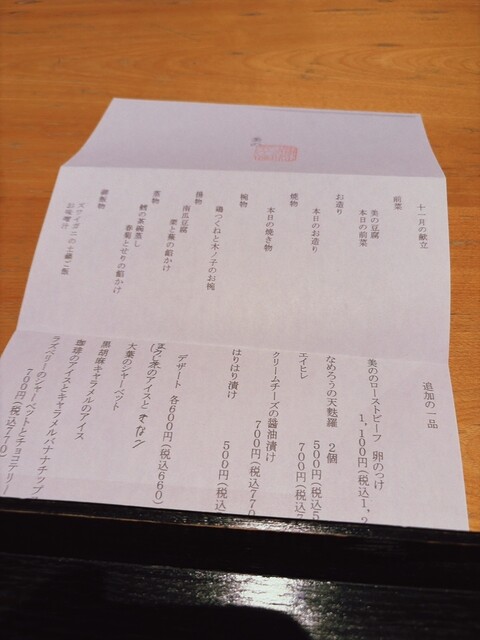 十一月の献立
前菜
美の豆腐
本日の前菜
お造り
本日のお造り
焼物
本日の焼き物
椀物
鶏つくねと木ノ子のお椀
揚物
南瓜豆腐
栗と蕪の餡かけ
蒸物
鱈の茶碗蒸し
春菊とせりの餡かけ
御飯物
ズワイガニの土鍋ご飯
お味噌汁
追加の一品
美ののローストビーフ 卵のっけ
1,100円(税込1,2
なめろうの天麩羅 2個
500円(税込5
エイヒレ
700円(税込7
クリームチーズの醤油漬け
700円(税込770
はりはり漬け
500円(税込
デザート 各600円(税込660)
ほうじ茶のアイスと
大葉のシャーベット
黒胡麻キャラメルのアイス
珈琲のアイスとキャラメルバナナチップ
ラズベリーのシャーベットとチョコテリー
700円(税込770)